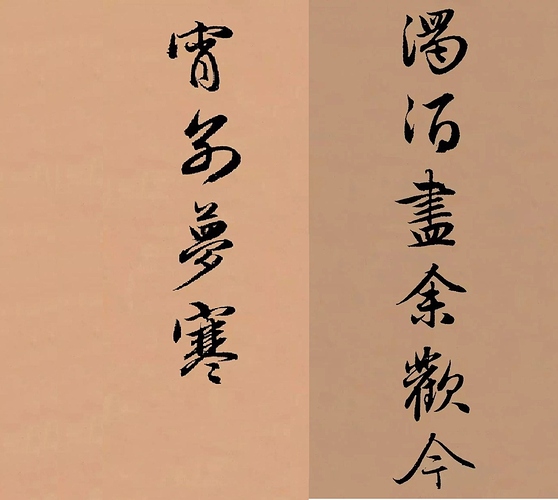 濁酒盡余歡今
宵別夢寒